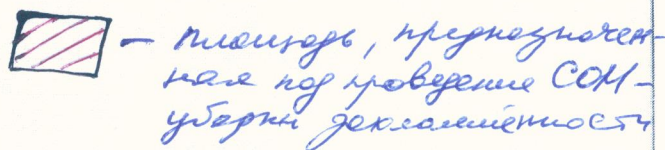 — площадь, предназначен-
ная под проведение СОМ-
уборки захламлённости